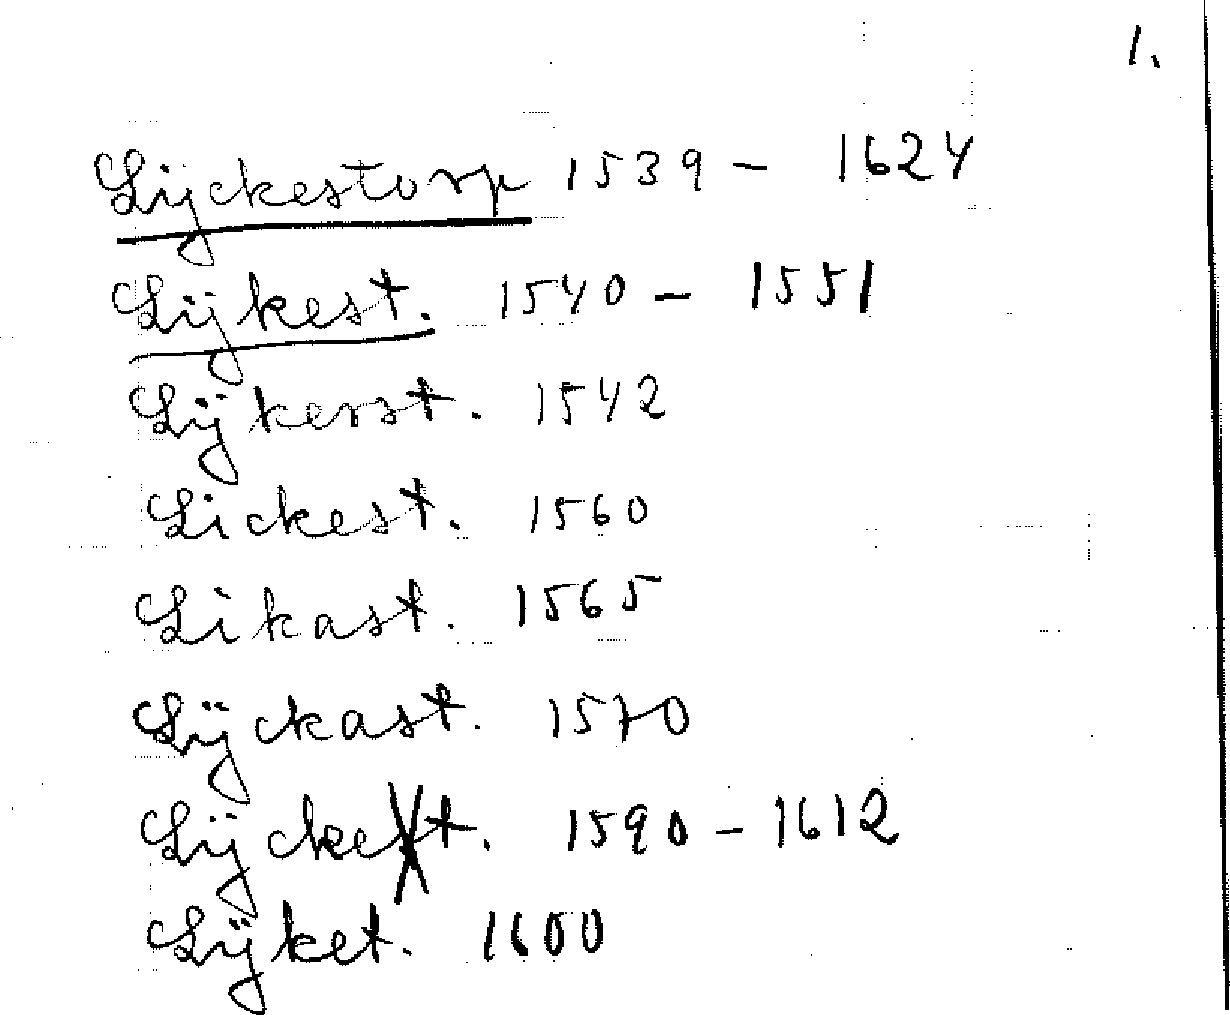 1.
Lijckestorp 1539 - 1624
Lijkest. 1540 - 1551
Lijkerst. 1542
Lickest. 1560
Likast. 1565
Lijckast. 1570
Lijcket. 1590 - 1612
Lijket. 1600